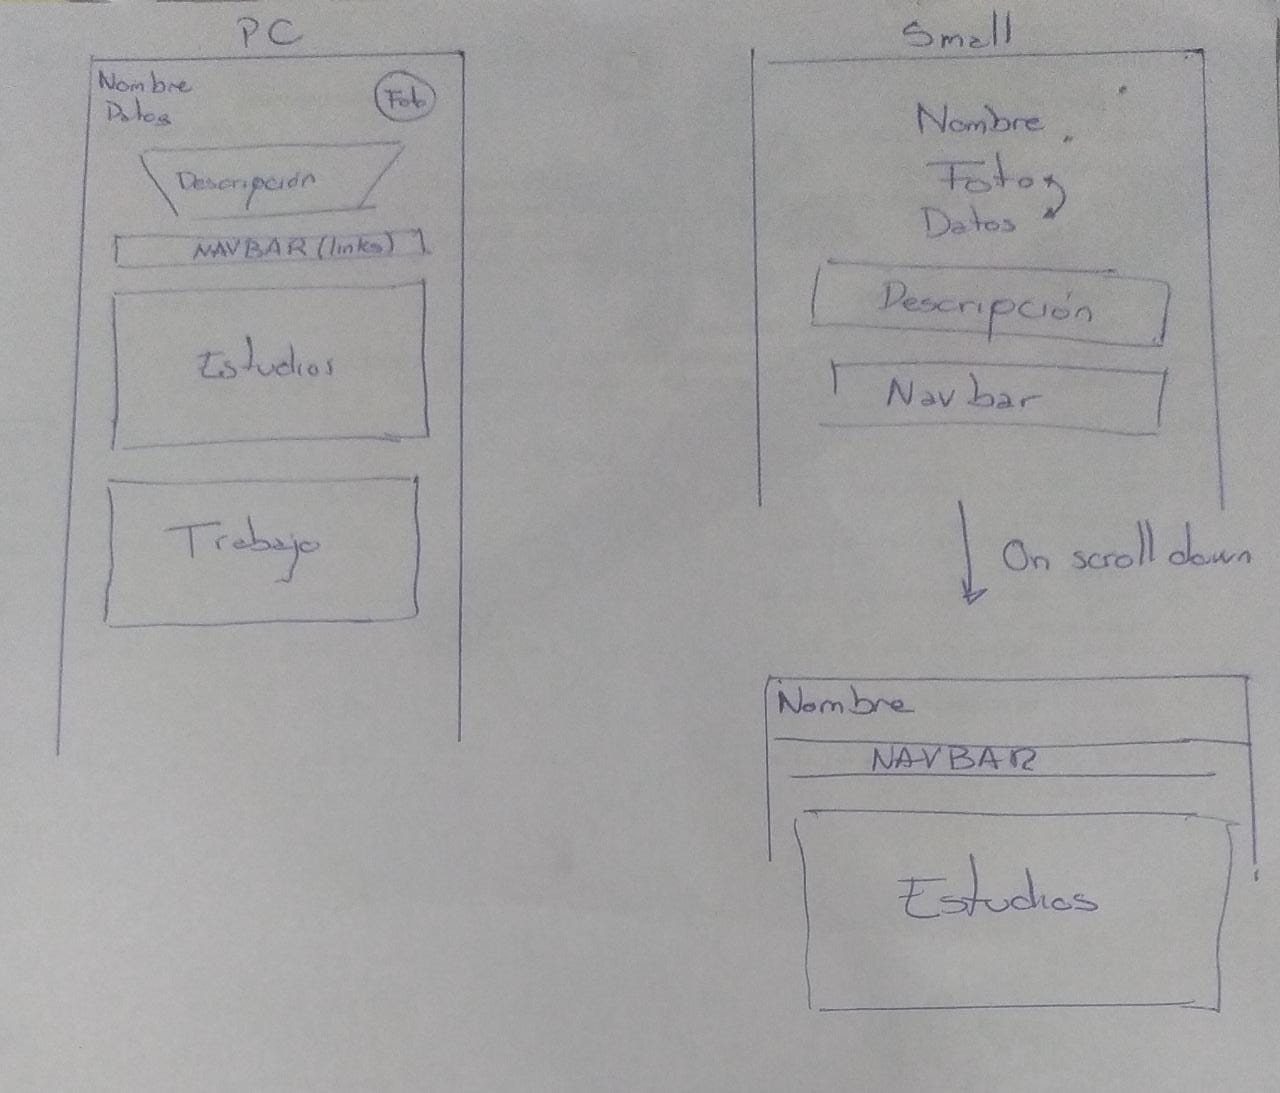 PC
Nombre
Datos
Foto
Descripción
NAVBAR (links)
Estudios
Trabajo
Small
Nombre
Foto
Datos
Descripción
Navbar
On scroll down
Nombre
NAVBAR
Estudios